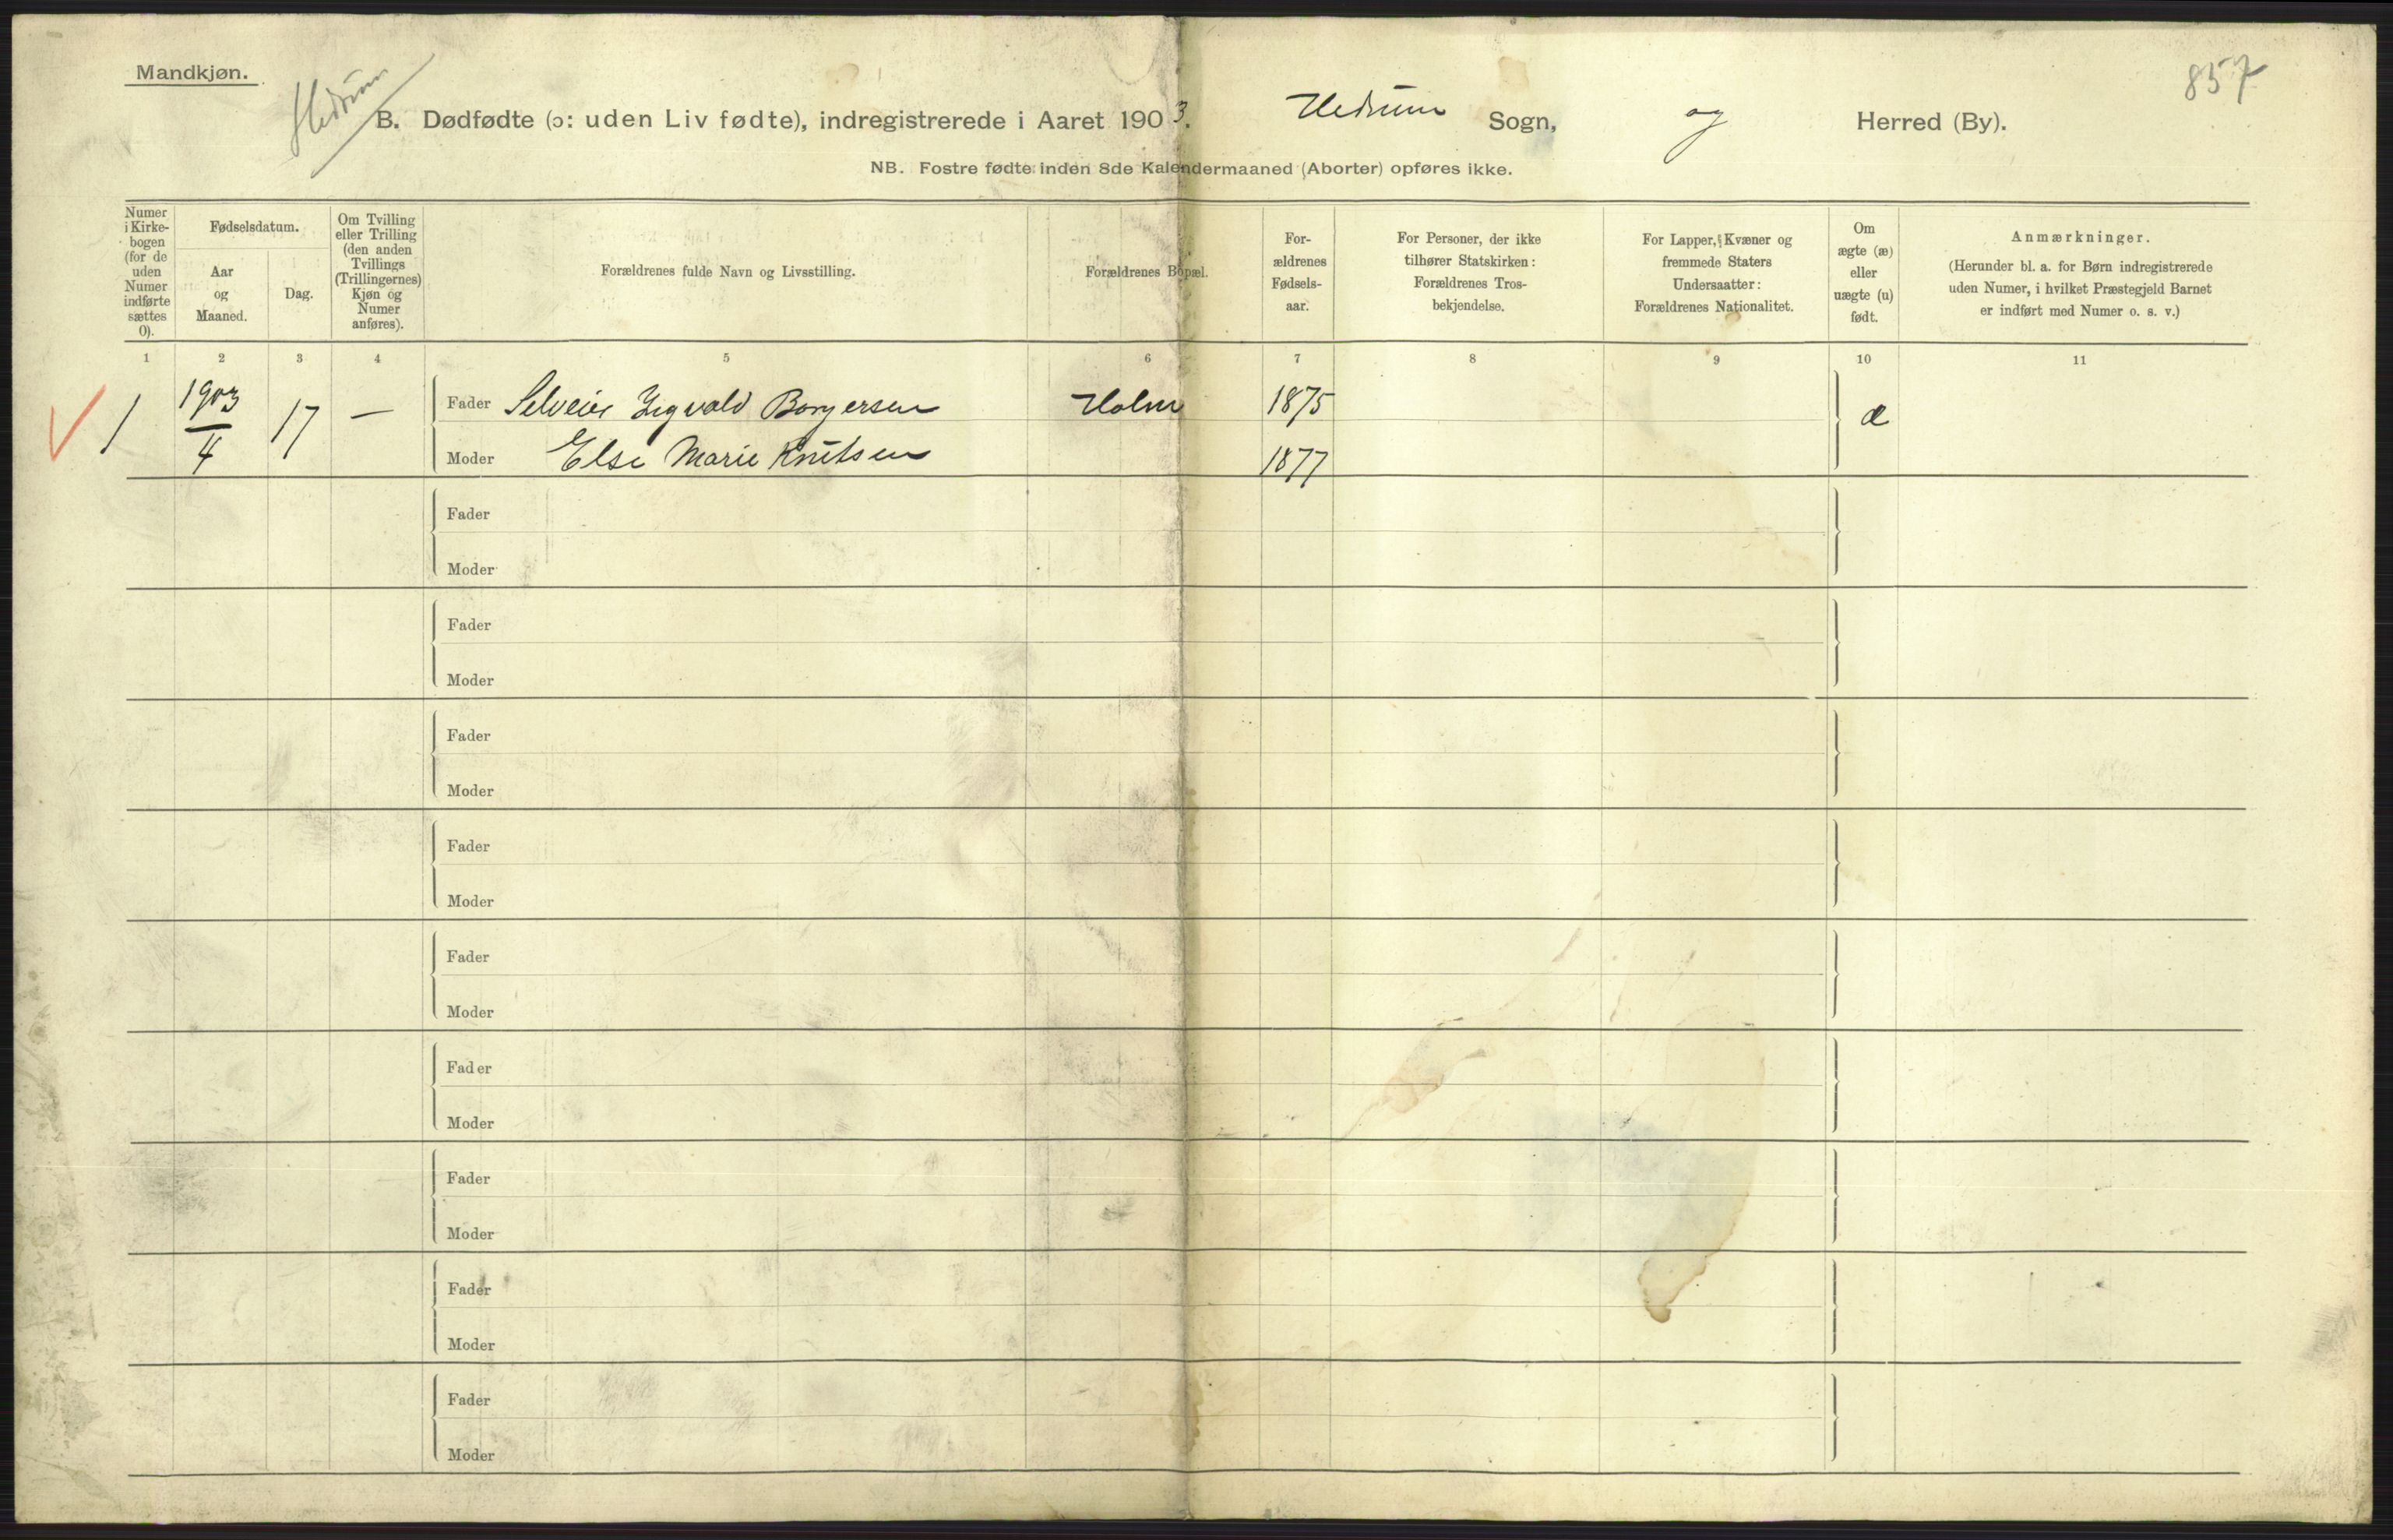 Mandkjøn.
Hedrum
857
B. Dødfødte (ɔ: uden Liv fødte), indregistrerede i Aaret 1903. Hedrum Sogn, og Herred (By).
NB. Fostre fødte inden 8de Kalendermaaned (Aborter) opføres ikke.
Numer
i Kirke-
bogen
(for de
uden
Numer
indførte
sættes
0).
Fødselsdatum.
Aar
og
Maaned.
Dag.
Om Tvilling
eller Trilling
(den anden
Tvillings
(Trillingernes)
Kjøn og
Numer
anføres).
Forældrenes fulde Navn og Livsstilling.
Forældrenes Bopæl.
For-
ældrenes
Fødsels-
aar.
For Personer, der ikke
tilhører Statskirken:
Forældrenes Tros-
bekjendelse.
For Lapper, Kvæner og
fremmede Staters
Undersaatter:
Forældrenes Nationalitet.
Om
ægte (æ)
eller
uægte (u)
født.
Anmærkninger.
(Herunder bl. a. for Børn indregistrerede
uden Numer, i hvilket Præstegjeld Barnet
er indført med Numer o. s. v.)
1 2 3 4 5 6 7 8 9 10 11
1 1903 4 17 — Fader Selveier Ingvald Borgersen Holm 1875 æ
Moder Else Marie Knutsen 1877
Fader
Moder
Fader
Moder
Fader
Moder
Fader
Moder
Fader
Moder
Fader
Moder
Fader
Moder
Fader
Moder
Fader
Moder